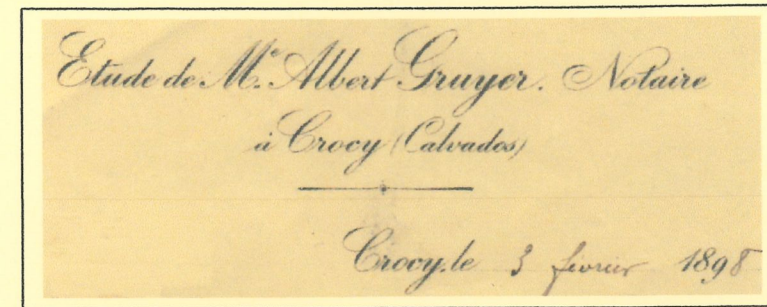 Etude de Me Albert Gruyer. Notaire
à Crocy (Calvados)
Crocy, le 3 février 1898